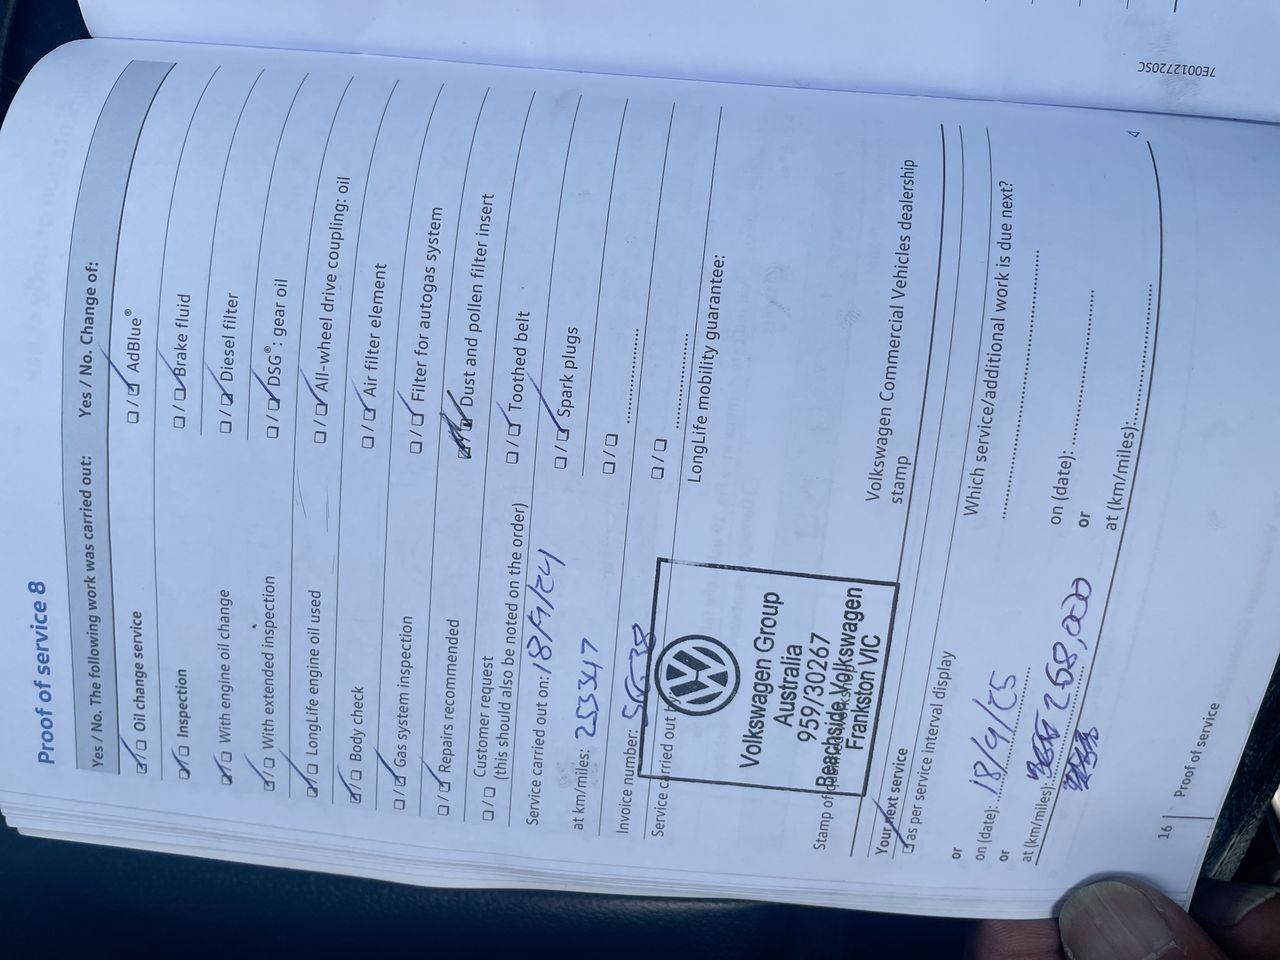 Proof of service 8
Yes / No. The following work was carried out:
Yes / No. Change of:
Oil change service
Inspection
With engine oil change
With extended inspection
LongLife engine oil used
Body check
Gas system inspection
Repairs recommended
Customer request
(this should also be noted on the order)
AdBlue®
Brake fluid
Diesel filter
DSG®: gear oil
All-wheel drive coupling: oil
Air filter element
Filter for autogas system
Dust and pollen filter insert
Toothed belt
Spark plugs
Service carried out on: 18/9/24
at km/miles: 253347
Invoice number:
Service carried out
Volkswagen Group
Australia
959/30267
Beachside Volkswagen
Frankston VIC
Stamp of
LongLife mobility guarantee:
Volkswagen Commercial Vehicles dealership
stamp
Your next service
as per service interval display
or
on (date): 18/9/25
or
at (km/miles): 268,000
Which service/additional work is due next?
on (date):
or
at (km/miles):
16
Proof of service
7E0012720SC